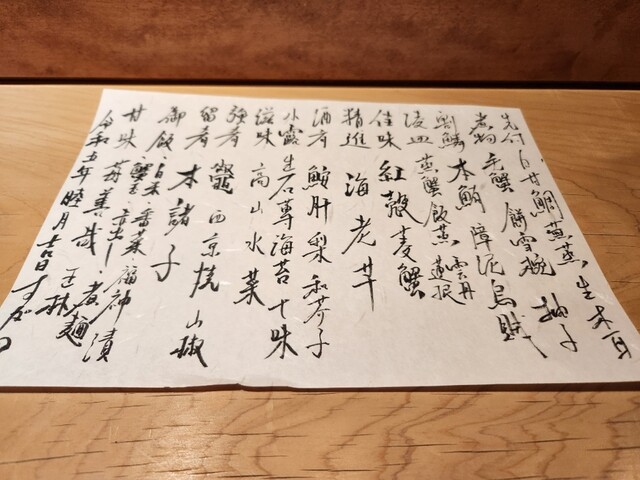 先付 白甘鯛蕪蒸 生木耳
煮物 毛蟹 餅雪椀 柚子
割鱗 本鮪 障泥烏賊
凌皿 蒸蟹飯蒸 雲丹 蓮根
佳味 紅殻麦蟹
精進 海老芋
酒肴 鮟肝 梨 和芥子
小露 生石蓴海苔 十味
滋味 高山水菜
強肴 鼈 西京焼 山椒
留肴 本諸子
御飯 白米 番菜 福神漬
蟹玉 煮麺
甘味 苺善哉 王林
令和五年 睦月